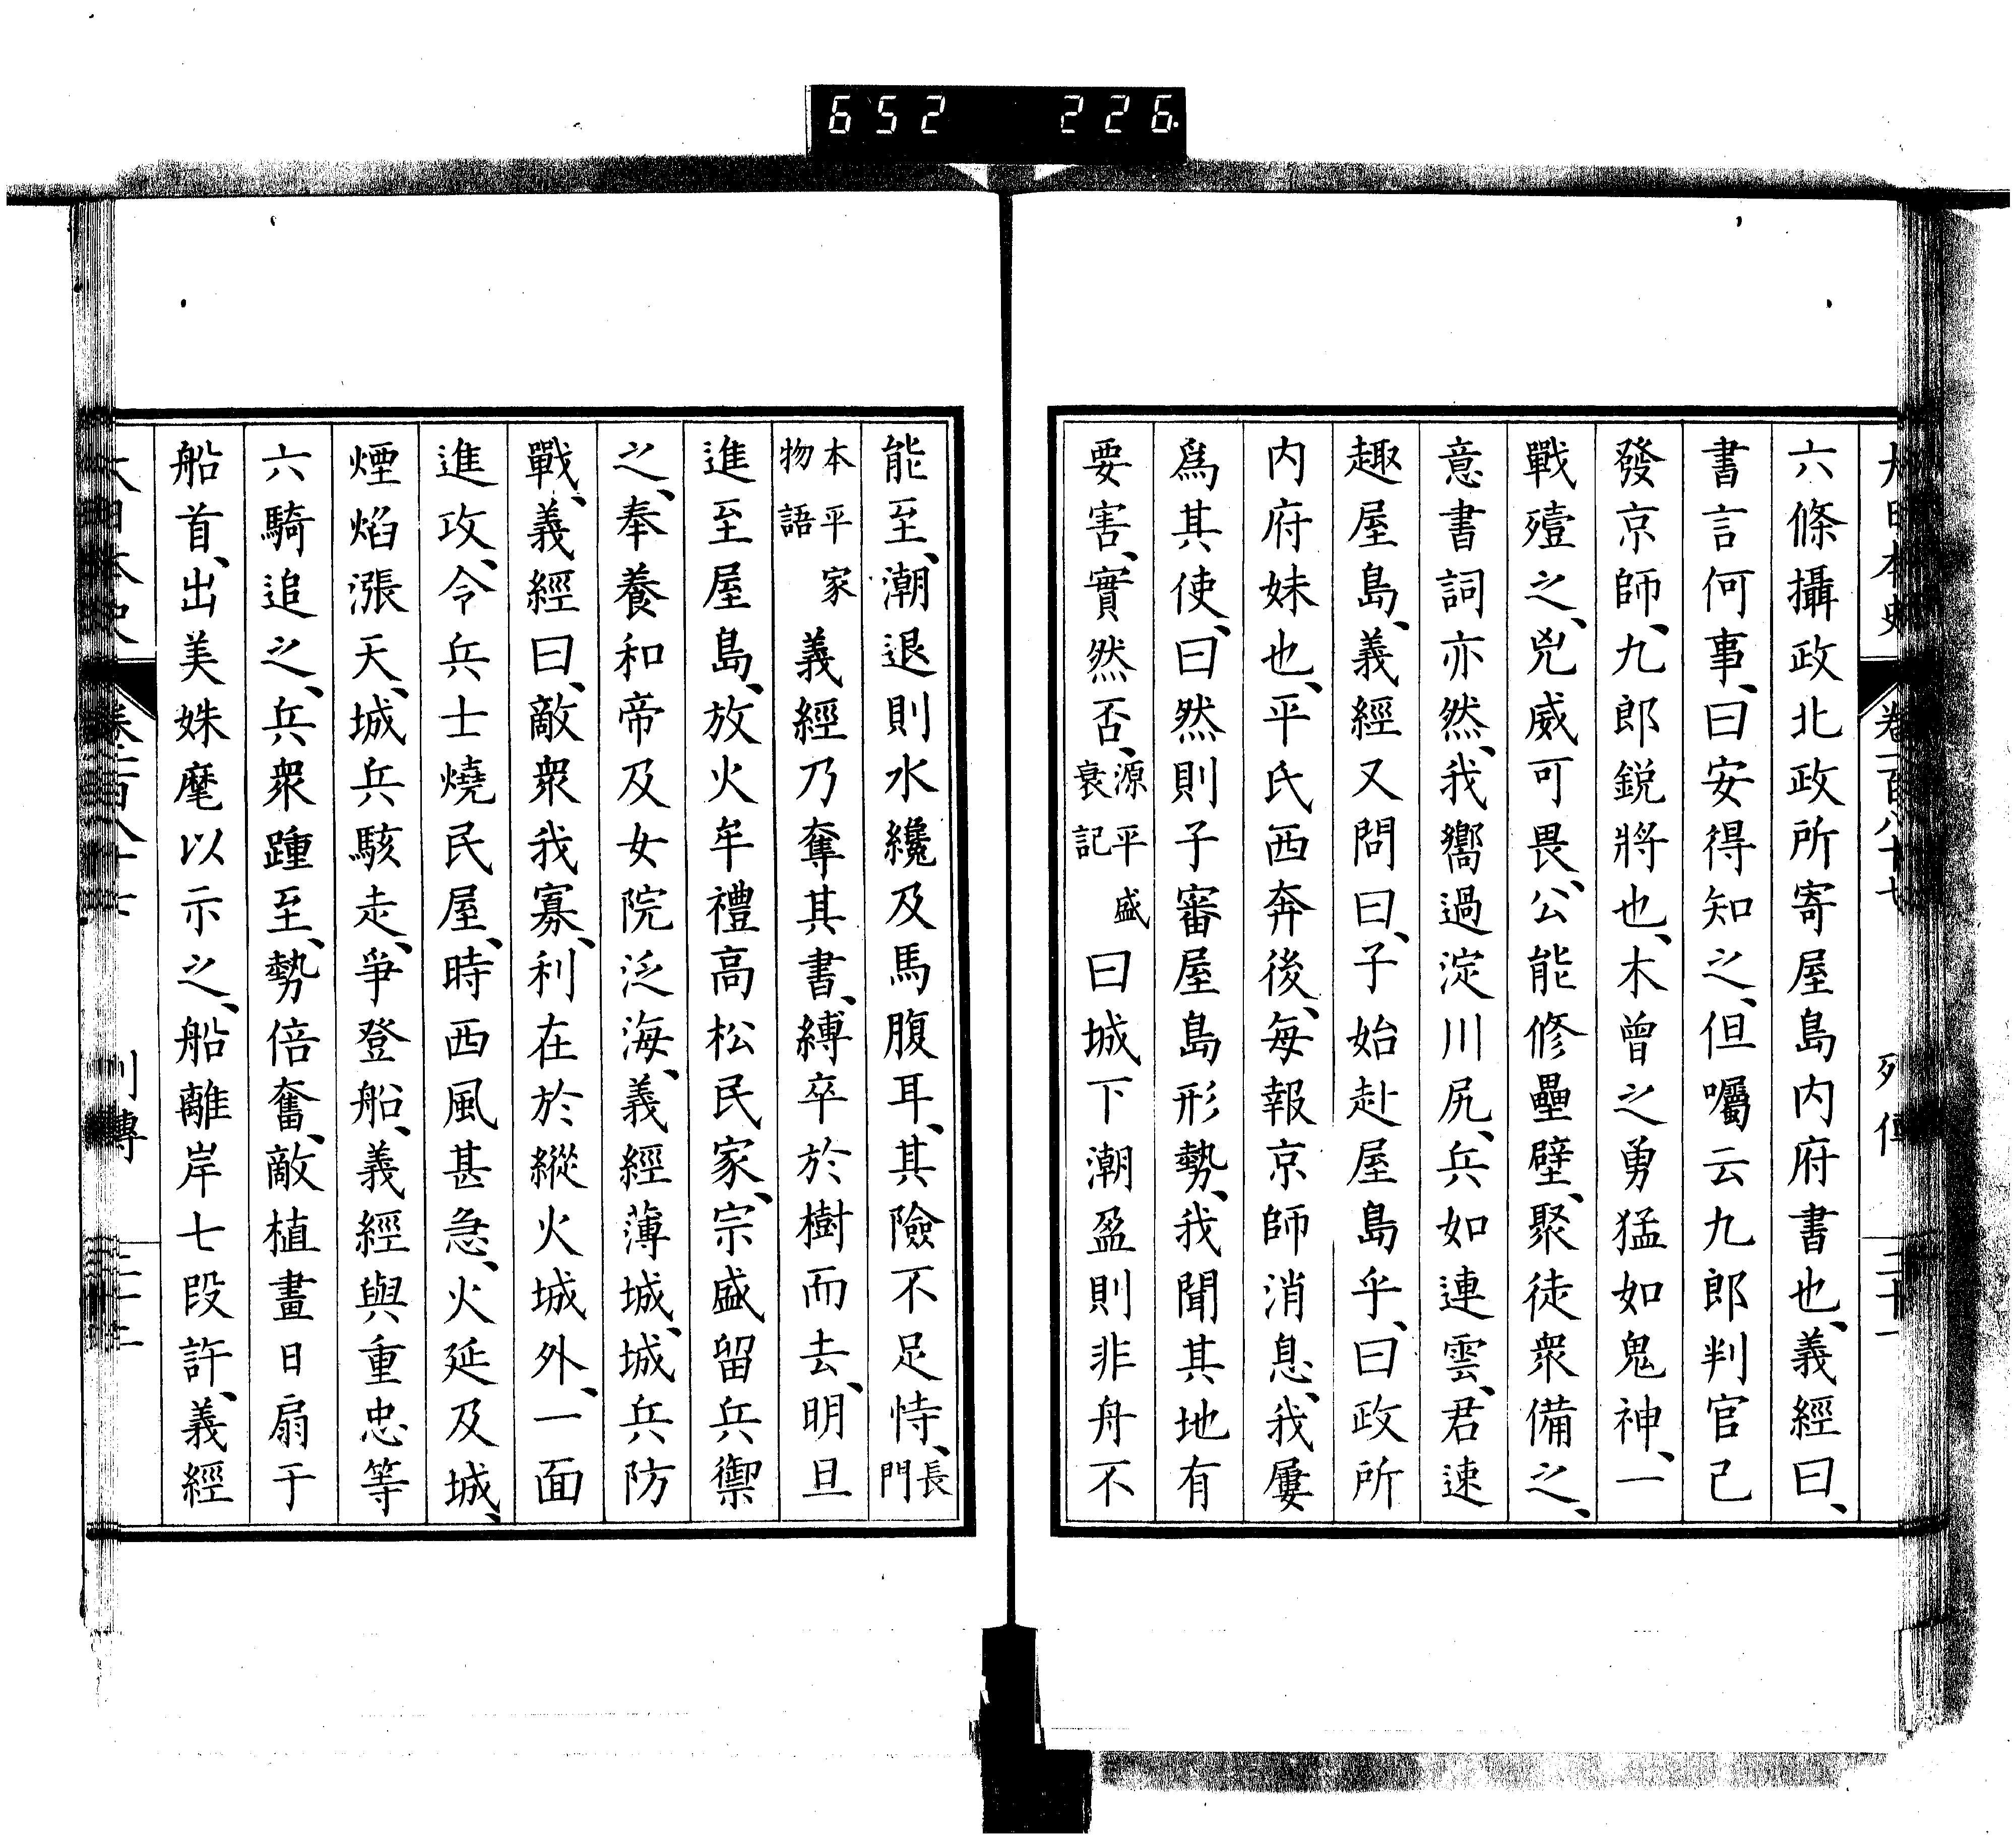 652 226
大日本史 卷一百八十七 列傳 三十一
六條攝政北政所寄屋島内府書也、義經曰、
書言何事、曰安得知之、但囑云九郎判官已
發京師、九郎鋭將也、木曾之勇猛如鬼神、一
戰殪之、兇威可畏、公能修壘壁、聚徒衆備之、
意書詞亦然、我嚮過淀川尻、兵如連雲、君速
趣屋島、義經又問曰、子始赴屋島乎、曰政所
内府妹也、平氏西奔後、毎報京師消息、我屢
爲其使、曰然則子審屋島形勢、我聞其地有
要害、實然否、源平盛衰記曰城下潮盈則非舟不
能至、潮退則水纔及馬腹耳、其險不足恃、長門
本平家物語義經乃奪其書、縛卒於樹而去、明旦
進至屋島、放火牟禮高松民家、宗盛留兵禦
之、奉養和帝及女院泛海、義經薄城、城兵防
戰、義經曰、敵衆我寡、利在於縱火城外、一面
進攻、令兵士燒民屋、時西風甚急、火延及城、
煙焰漲天、城兵駭走、爭登船、義經與重忠等
六騎追之、兵衆踵至、勢倍奮、敵植畫日扇于
船首、出美姝麾以示之、船離岸七段許、義經